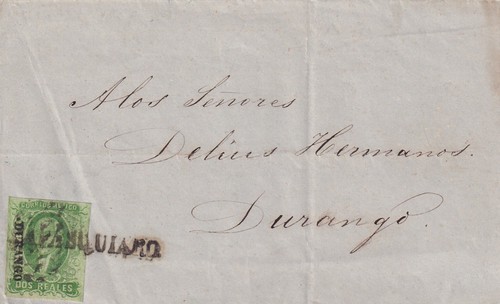 A los Señores
Delius Hermanos.
Durango.
CORREOS MEJICO
DURANGO
PAPASQUIARO
DOS REALES